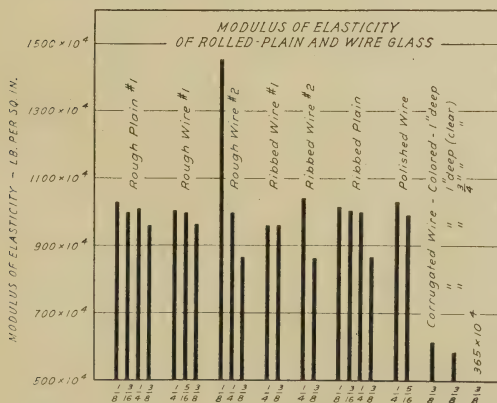 MODULUS OF ELASTICITY
OF ROLLED-PLAIN AND WIRE GLASS
MODULUS OF ELASTICITY – LB. PER SQ IN.
1500×10⁴
1300×10⁴
1100×10⁴
900×10⁴
700×10⁴
500×10⁴
Rough Plain #1
Rough Wire #1
Rough Wire #2
Ribbed Wire #1
Ribbed Wire #2
Ribbed Plain
Polished Wire
Corrugated Wire - Colored - 1" deep
" " 1" deep (clear)
" " 3/4" "
365×10⁴
1/8 3/16 1/4 3/8 1/4 5/16 3/8 1/8 1/4 3/8 1/4 3/8 1/4 3/8 1/8 3/16 1/4 3/8 1/4 5/16 3/8 3/8 3/8